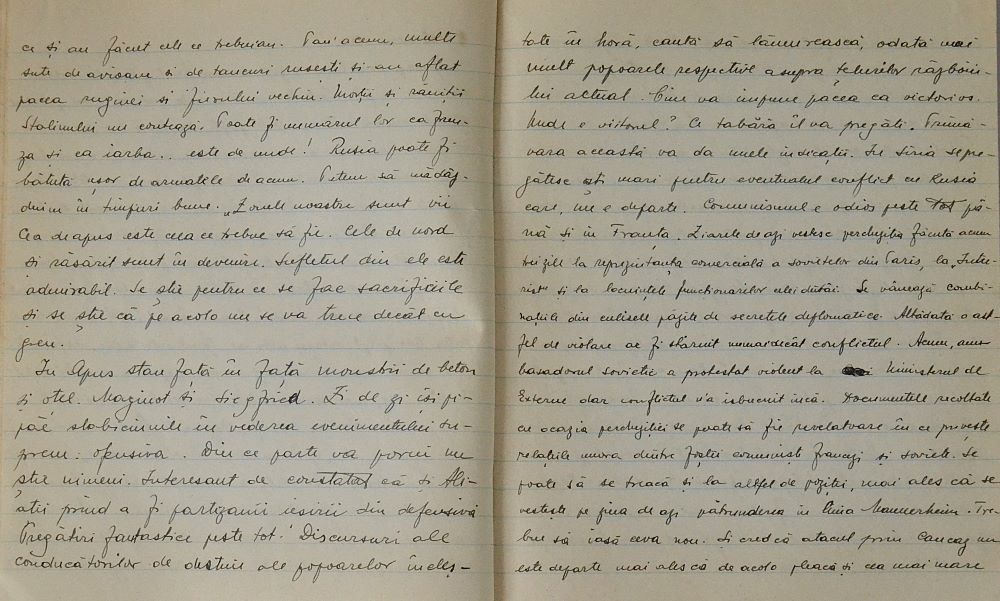 ce și au făcut cele ce trebuiau. Pân'acum, multe
sute de avioane și de tancuri rusești și-au aflat
pacea ruginei și fierului vechiu. Morții și răniții
Stalinului nu contează. Poate fi numărul lor ca frun-
za și ca iarba.. este de unde! Rusia poate fi
bătută ușor de armatele de acum. Putem să nădăj-
duim în timpuri bune. „Zorile noastre sunt vii
Cea de apus este ceea ce trebue să fie. Cele de nord
și răsărit sunt în devenire. Sufletul din ele este
admirabil. Se știe pentru ce se fac sacrificiile
și se știe că pe acolo nu se va trece decât cu
greu.
In Apus stau față în față monștrii de beton
și oțel. Maginot și Siegfried. Zi de zi își pi-
păe slăbiciunile în vederea evenimentului su-
prem: ofensiva. Din ce parte va porni nu
știe nimeni. Interesant de constatat că și Ali-
ații prind a fi partizanii ieșirii din defensivă
Pregătiri fantastice peste tot! Discursuri ale
conducătorilor de destine ale popoarelor încleș-
tate în horă, caută să lămurească, odată mai
mult popoarele respective asupra telurilor războiu-
lui actual. Cine va impune pacea ca victorios.
Unde e viitorul? Ce tabără îl va pregăti. Primă-
vara aceasta va da unele indicații. In Siria se pre-
gătesc oști mari pentru eventualul conflict cu Rusia
care, nu e departe. Comunismul e odios peste tot pâ-
nă și în Franța. Ziarele de azi vestesc perchiziția făcută acum
trei zile la reprezintanța comercială a sovietelor din Paris, la „Intu-
rist" și la locuințele funcționarilor celei dintâi. Se vânează combi-
națiile din culisele pâzite de secretele diplomatice. Altădată o ast-
fel de violare ar fi stârnit numaidecât conflictul. Acum, am-
basadorul sovietic a protestat violent la Ministerul de
Externe dar conflictul n'a isbucnit încă. Documentele recoltate
cu ocazia perchiziției se poate să fie revelatoare în ce privește
relațiile dintre foștii comuniști francezi și soviete. Se
poate să se treacă și la altfel de poziții, mai ales că se
vestește pe ziua de azi pătrunderea în linia Mannerheim. Tre-
bue să iasă ceva nou. Și cred că atacul prin Caucaz nu
este departe mai ales că de acolo pleacă și cea mai mare